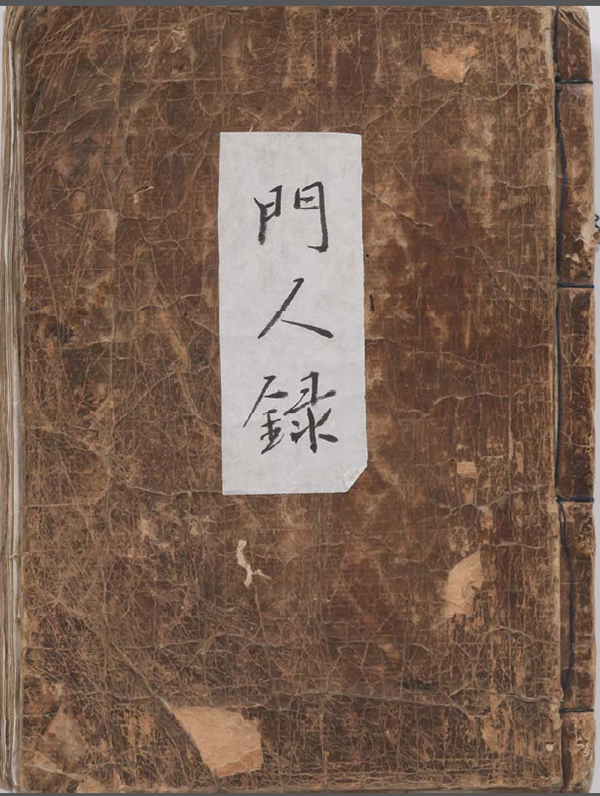 門人録